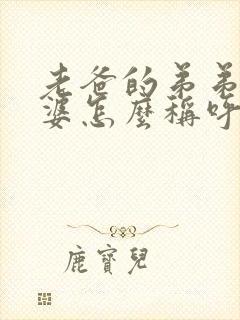 老爸的弟弟
婆怎麼稱呼
鹿寶兒